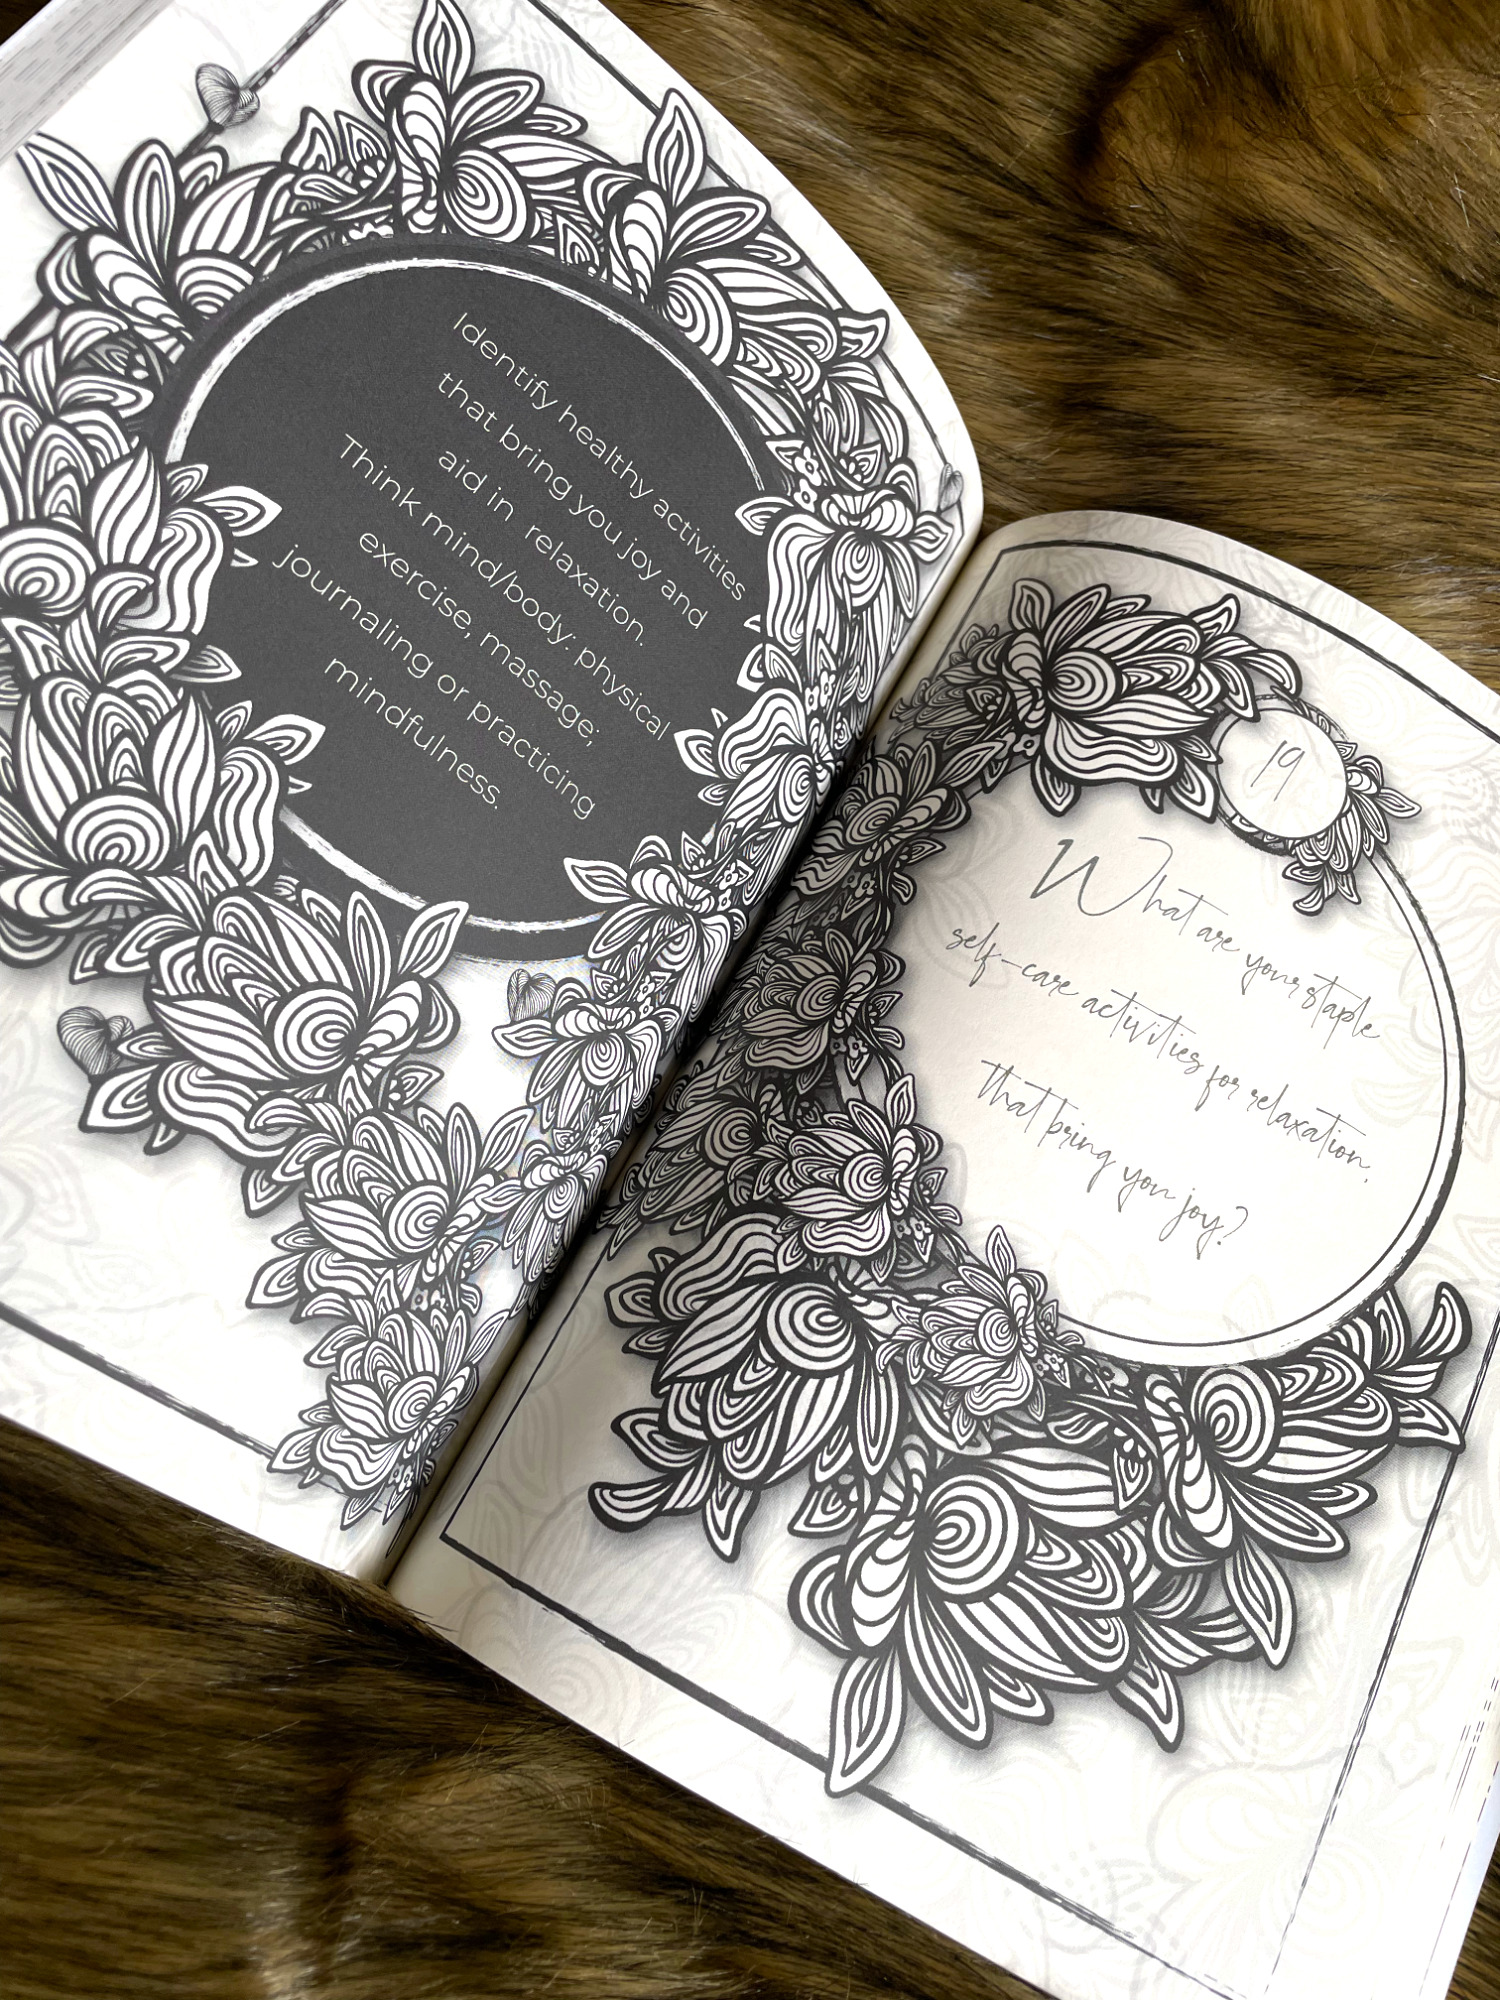 Identify healthy activities
that bring you joy and
aid in relaxation.
Think mind/body: physical
exercise, massage;
journaling or practicing
mindfulness.
19
What are your staple
self-care activities for relaxation,
that bring you joy?